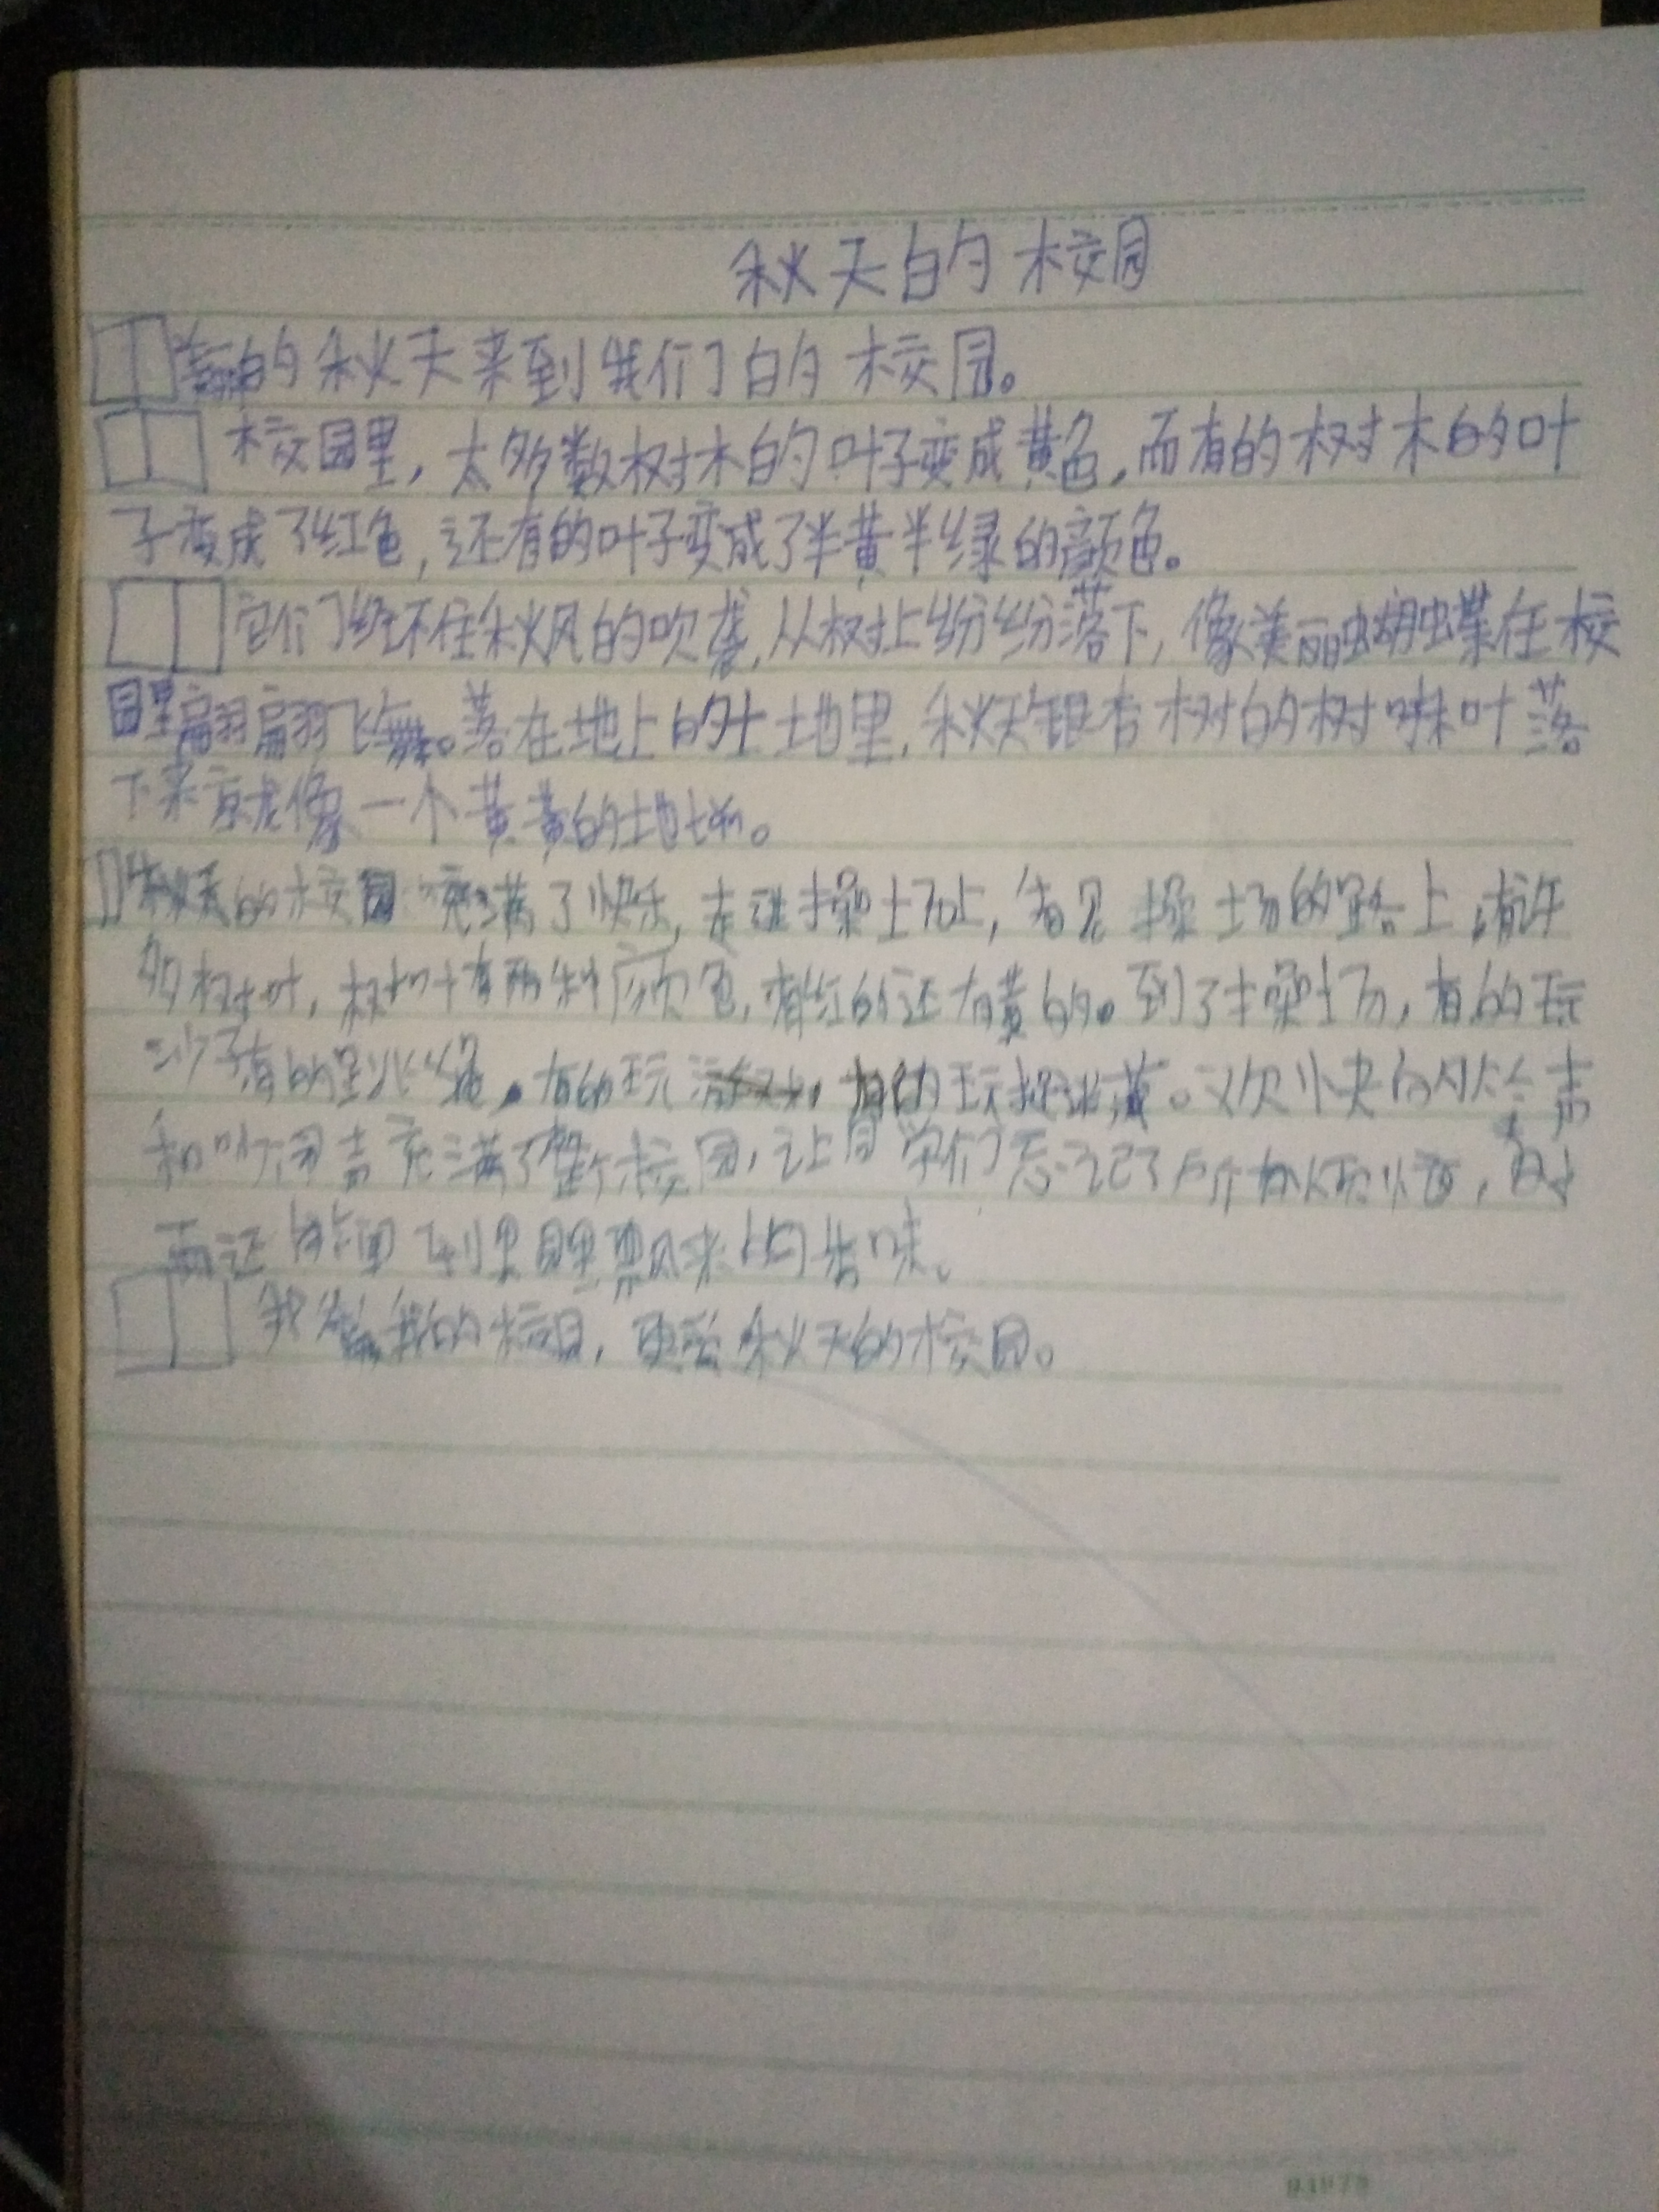 秋天的校园
美丽的秋天来到我们的校园。
校园里,太多数树木的叶子变成黄色,而有的树木的叶
子变成了红色,还有的叶子变成了半黄半绿的颜色。
它们经不住秋风的吹袭,从树上纷纷落下,像美丽蝴蝶在校
园里翩翩飞舞。落在地上的土地里,秋天银杏树的树叶落
下来就像一个黄黄的地
秋天的校园充满了快乐,走进操场上,看见操场的路上,有许
多树叶,树叶有两种颜色,有红的还有黄的。到了操场,有的玩
沙子有的跳绳,有的玩游戏,有的玩捉迷藏。欢快的
声充满了整个校园,让同学们忘记了所有烦恼,
而还能闻到果园里飘来的香味。
我爱我的校园,更爱秋天的校园。